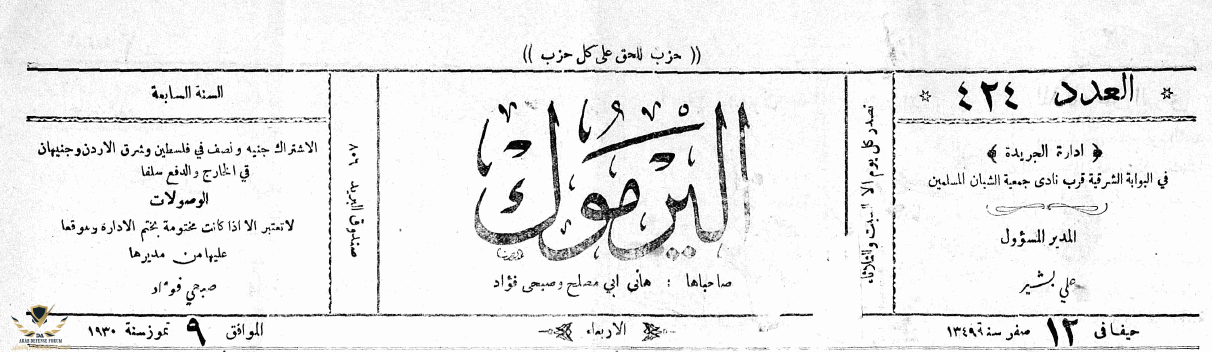 (( حزب للحق على كل حزب ))
العدد ٤٢٤
ادارة الجريدة
في البوابة الشرقية قرب نادى جمعية الشبان المسلمين
المدير المسؤول
علي بشير
تصدر كل يوم الا السبت والثلاثاء
اليرموك
صاحباها : هاني ابي مصلح وصبحى فؤاد
صندوق البريد ٨٠٦
السنة السابعة
الاشتراك جنيه ونصف في فلسطين وشرق الاردن وجنيهان
في الخارج والدفع سلفا
الوصولات
لا تعتبر الا اذا كانت مختومة بختم الادارة وموقعا
عليها من مديرها
صبحي فؤاد
حيفا في ١٢ صفر سنة ١٣٤٩
الاربعاء
الموافق ٩ تموز سنة ١٩٣٠
ARAB DEFENSE FORUM